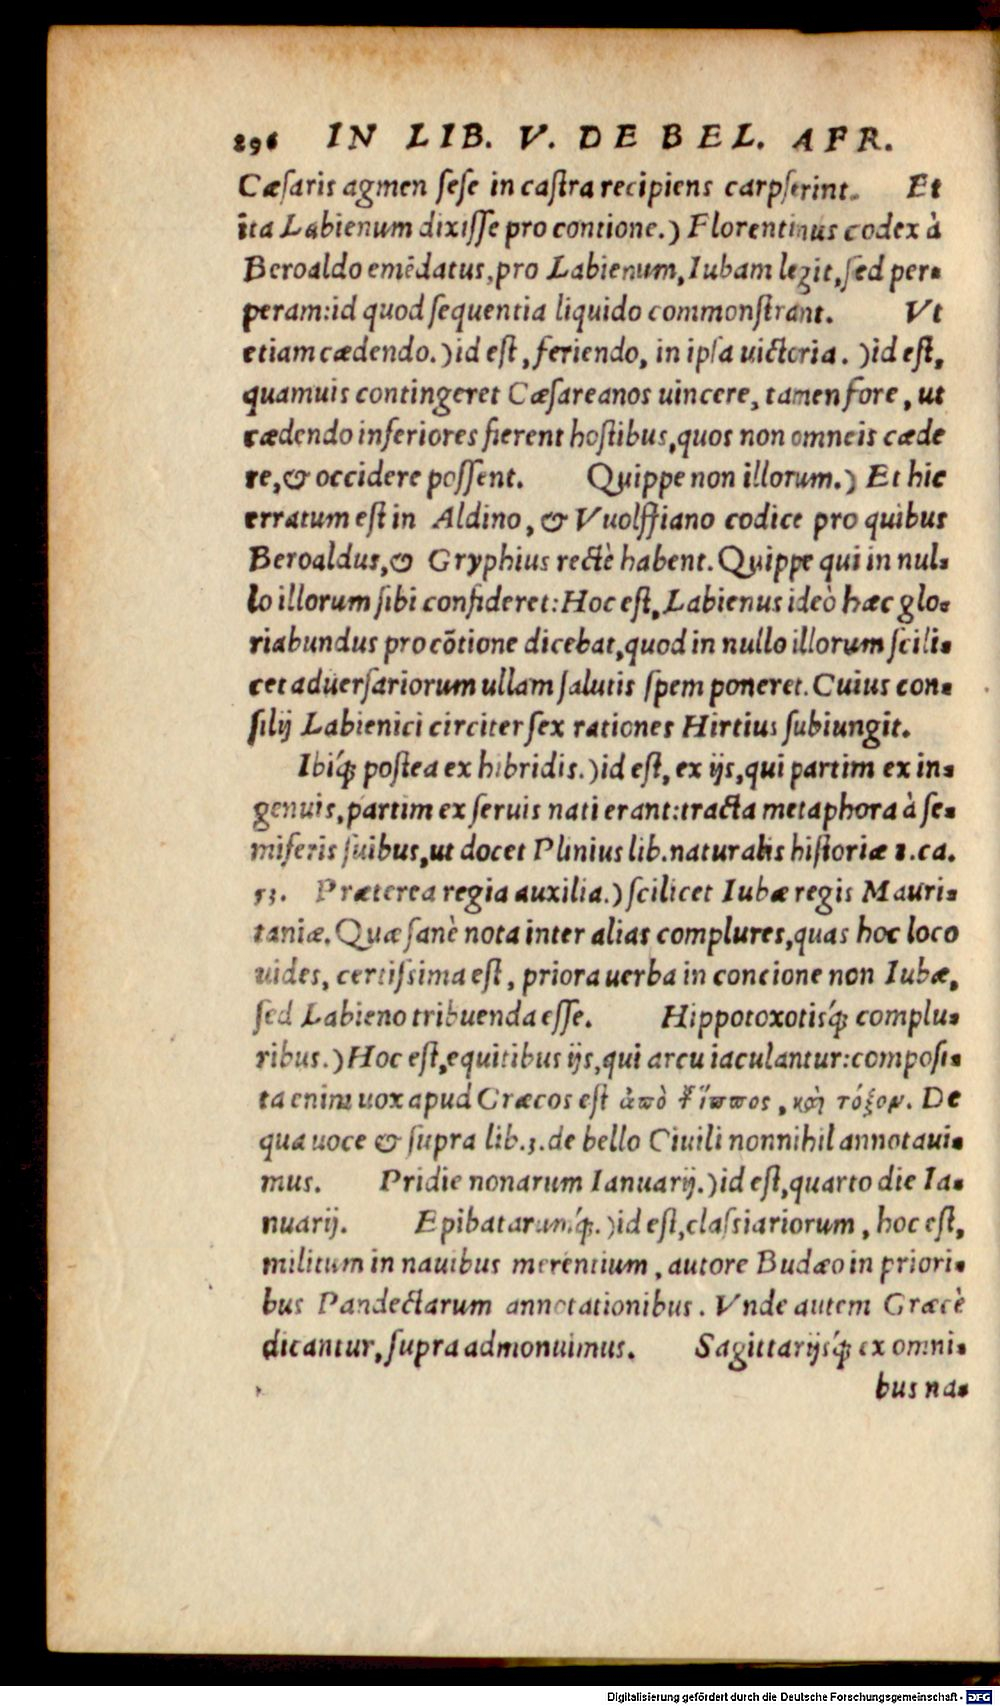 296 IN LIB. V. DE BEL. AFR.
Cæſaris agmen ſeſe in caſtra recipiens carpſerint. Et
ita Labienum dixiſſe pro contione.) Florentinus codex à
Beroaldo emēdatus, pro Labienum, Iubam legit, ſed per-
peram: id quod ſequentia liquido commonſtrant. Vt
etiam cædendo.) id eſt, feriendo, in ipſa uictoria.) id eſt,
quamuis contingeret Cæſareanos uincere, tamen fore, ut
cædendo inferiores fierent hoſtibus, quos non omneis cæde
re, & occidere poſſent. Quippe non illorum.) Et hic
erratum eſt in Aldino, & Vuolffiano codice pro quibus
Beroaldus, & Gryphius rectè habent. Quippe qui in nul-
lo illorum ſibi confideret: Hoc eſt, Labienus ideò hæc glo-
riabundus pro cōtione dicebat, quod in nullo illorum ſcili-
cet aduerſariorum ullam ſalutis ſpem poneret. Cuius con-
ſilij Labienici circiter ſex rationes Hirtius ſubiungit.
Ibiq́ꝫ poſtea ex hibridis.) id eſt, ex ijs, qui partim ex in-
genuis, partim ex ſeruis nati erant: tracta metaphora à ſe-
miferis ſuibus, ut docet Plinius lib. naturalis hiſtoriæ 8. ca.
53. Præterea regia auxilia.) ſcilicet Iubæ regis Mauri-
taniæ. Quæ ſanè nota inter alias complures, quas hoc loco
uides, certiſsima eſt, priora uerba in concione non Iubæ,
ſed Labieno tribuenda eſſe. Hippotoxotisq́ꝫ complu-
ribus.) Hoc eſt, equitibus ijs, qui arcu iaculantur: compoſi-
ta enim uox apud Græcos eſt ἀπὸ τοῦ ἵππος, καὶ τόξον. De
qua uoce & ſupra lib. 3. de bello Ciuili nonnihil annotaui-
mus. Pridie nonarum Ianuarij.) id eſt, quarto die Ia-
nuarij. Epibatarumq́ꝫ.) id eſt, claſsiariorum, hoc eſt,
militum in nauibus merentium, autore Budæo in priori-
bus Pandectarum annotationibus. Vnde autem Græcè
dicantur, ſupra admonuimus. Sagittarijsq́ꝫ ex omni-
bus na-
Digitalisierung gefördert durch die Deutsche Forschungsgemeinschaft - DFG